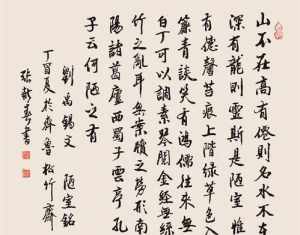 山不在高有僊則名水不在
深有龍則靈斯是陋室惟
吾德馨苔痕上階綠草色入
簾青談笑有鴻儒往來無
白丁可以調素琴閱金經無絲
竹之亂耳無案牘之勞形南
陽諸葛廬西蜀子雲亭孔
子云何陋之有
劉禹錫文 陋室銘
丁酉夏於齊魯松竹齋
張 書